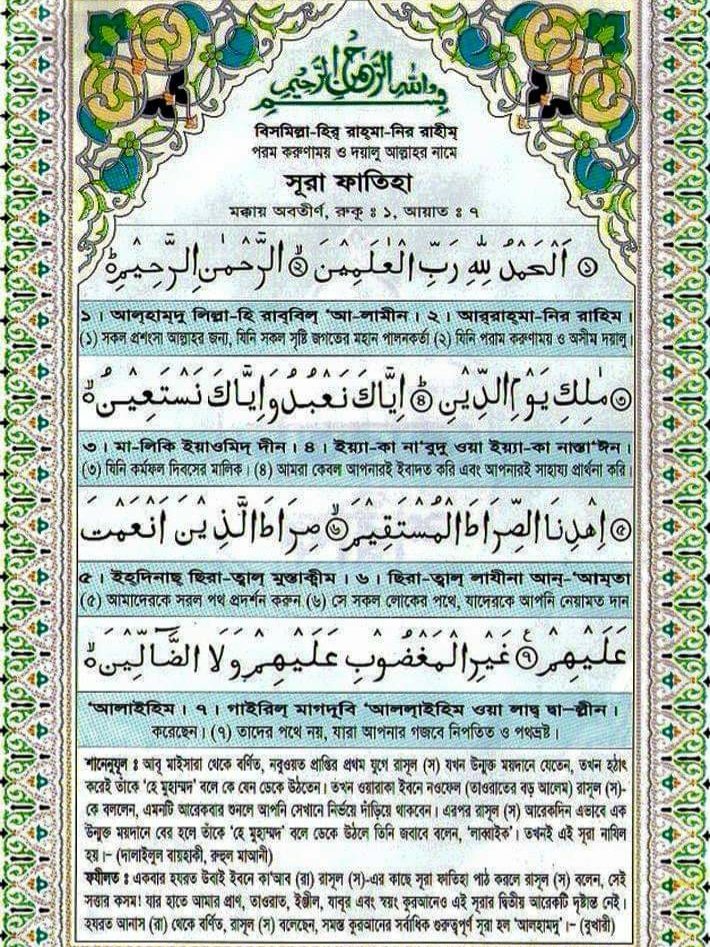 بِسْمِ اللهِ الرَّحْمٰنِ الرَّحِيْمِ
বিসমিল্লা-হির্ রাহ্‌মা-নির রাহীম্
পরম করুণাময় ও দয়ালু আল্লাহর নামে
সূরা ফাতিহা
মক্কায় অবতীর্ণ, রুকু ঃ ১, আয়াত ঃ ৭
১ اَلْحَمْدُ لِلّٰهِ رَبِّ الْعٰلَمِيْنَ ২ الرَّحْمٰنِ الرَّحِيْمِ
১। আল্‌হাম্‌দু লিল্লা-হি রাব্‌বিল্ ‘আ-লামীন। ২। আর্‌রাহ্‌মা-নির রাহিম।
(১) সকল প্রশংসা আল্লাহর জন্য, যিনি সকল সৃষ্টি জগতের মহান পালনকর্তা (২) যিনি পরাম করুণাময় ও অসীম দয়ালু।
৩ مٰلِكِ يَوْمِ الدِّيْنِ ৪ اِيَّاكَ نَعْبُدُ وَاِيَّاكَ نَسْتَعِيْنُ
৩। মা-লিকি ইয়াওমিদ্ দীন। ৪। ইয়্যা-কা না’বুদু ওয়া ইয়্যা-কা নাস্তা‘ঈন।
(৩) যিনি কর্মফল দিবসের মালিক। (৪) আমরা কেবল আপনারই ইবাদত করি এবং আপনারই সাহায্য প্রার্থনা করি।
৫ اِهْدِنَا الصِّرَاطَ الْمُسْتَقِيْمَ ৬ صِرَاطَ الَّذِيْنَ اَنْعَمْتَ
৫। ইহ্‌দিনাছ্ ছিরা-ত্বাল্ মুস্তাক্বীম। ৬। ছিরা-ত্বাল্ লাযীনা আন্-‘আম্‌তা
(৫) আমাদেরকে সরল পথ প্রদর্শন করুন (৬) সে সকল লোকের পথে, যাদেরকে আপনি নেয়ামত দান
عَلَيْهِمْ ৭ غَيْرِ الْمَغْضُوْبِ عَلَيْهِمْ وَلَا الضَّآلِّيْنَ
‘আলাইহিম। ৭। গাইরিল্ মাগদূবি ‘আলাইহিম ওয়া লাদ্ব দ্বা–ল্লীন।
করেছেন। (৭) তাদের পথে নয়, যারা আপনার গজবে নিপতিত ও পথভ্রষ্ট।
শানেনুযূল ঃ আবূ মাইসারা থেকে বর্ণিত, নবুওয়ত প্রাপ্তির প্রথম যুগে রাসূল (স) যখন উন্মুক্ত ময়দানে যেতেন, তখন হঠাৎ
করেই তাঁকে ‘হে মুহাম্মদ’ বলে কে যেন ডেকে উঠতেন। তখন ওয়ারাকা ইবনে নওফেল (তাওরাতের বড় আলেম) রাসূল (স)-
কে বললেন, এমনটি আরেকবার শুনলে আপনি সেখানে নির্ভয়ে দাঁড়িয়ে থাকবেন। এরপর রাসূল (স) আরেকদিন এভাবে এক
উন্মুক্ত ময়দানে বের হলে তাঁকে ‘হে মুহাম্মদ’ বলে ডেকে উঠলে তিনি জবাবে বলেন, ‘লাব্বাইক’। তখনই এই সূরা নাযিল
হয়।– (দালাইলুল বায়হাকী, রুহুল মাআনী)
ফযীলত ঃ একবার হযরত উবাই ইবনে কা’আব (রা) রাসূল (স)-এর কাছে সূরা ফাতিহা পাঠ করলে রাসূল (স) বলেন, সেই
সত্তার কসম! যার হাতে আমার প্রাণ, তাওরাত, ইঞ্জীল, যাবূর এবং স্বয়ং কুরআনেও এই সূরার দ্বিতীয় আরেকটি দৃষ্টান্ত নেই।
হযরত আনাস (রা) থেকে বর্ণিত, রাসূল (স) বলেছেন, সমস্ত কুরআনের সর্বাধিক গুরুত্বপূর্ণ সূরা হল ‘আলহামদু’।– (বুখারী)